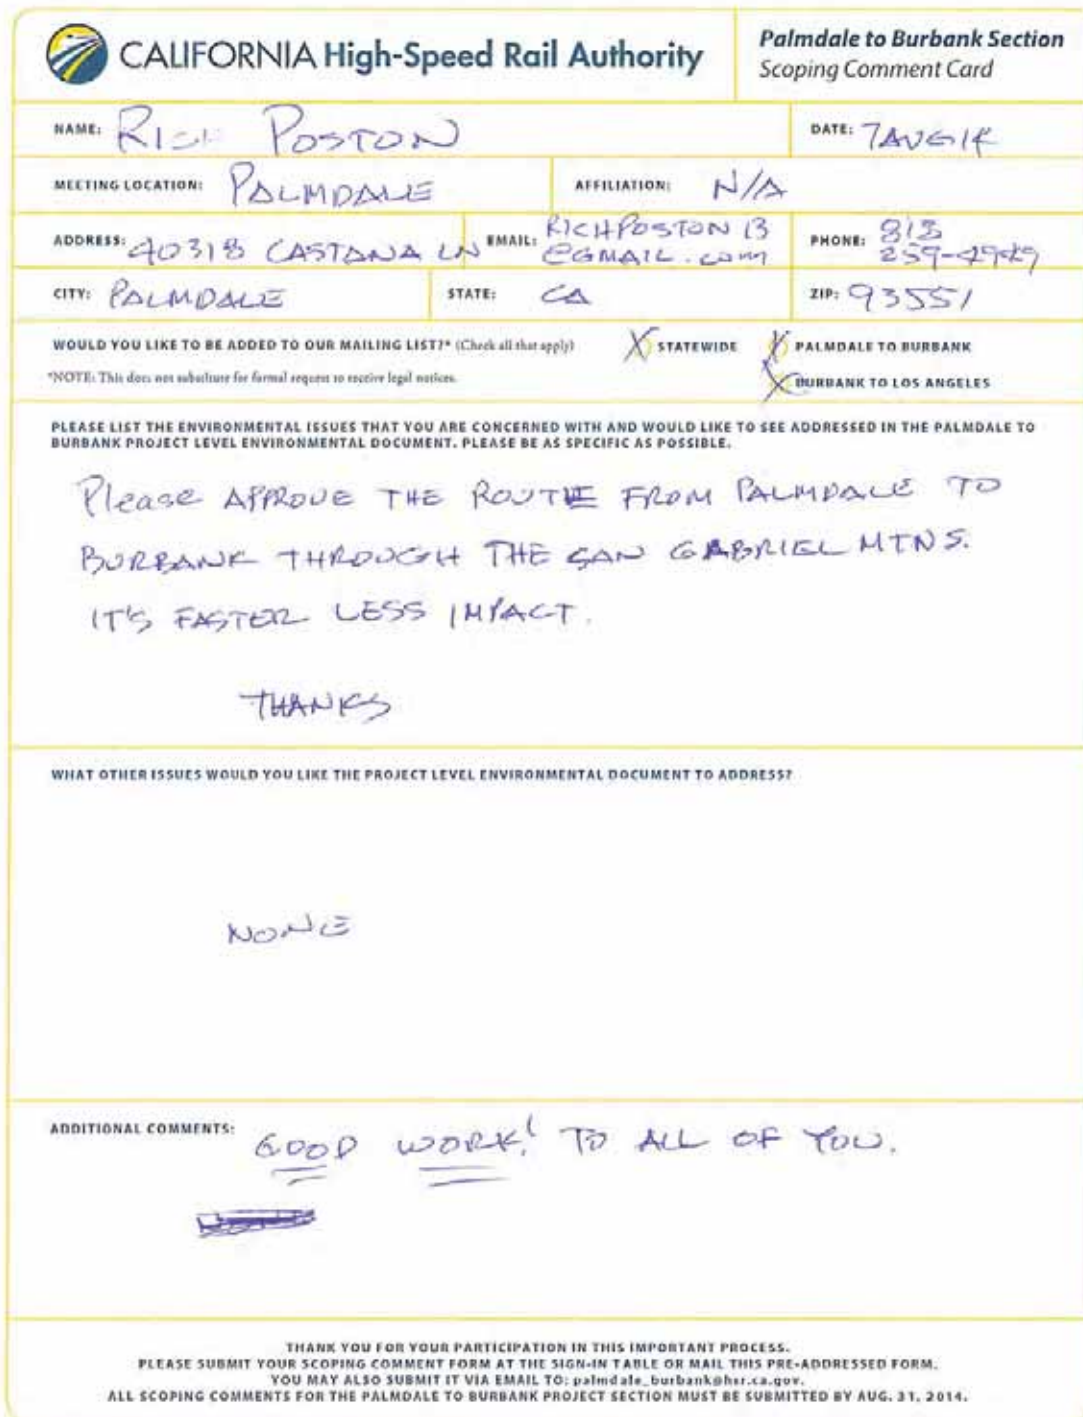 CALIFORNIA High-Speed Rail Authority
Palmdale to Burbank Section
Scoping Comment Card
NAME: RICH POSTON
DATE: 7AUG14
MEETING LOCATION: PALMDALE
AFFILIATION: N/A
ADDRESS: 40318 CASTANA LN
EMAIL: RICHPOSTON13
@GMAIL.com
PHONE:
CITY: PALMDALE
STATE: CA
ZIP: 93551
WOULD YOU LIKE TO BE ADDED TO OUR MAILING LIST?* (Check all that apply)
X STATEWIDE
X PALMDALE TO BURBANK
*NOTE: This does not substitute for formal request to receive legal notices.
X BURBANK TO LOS ANGELES
PLEASE LIST THE ENVIRONMENTAL ISSUES THAT YOU ARE CONCERNED WITH AND WOULD LIKE TO SEE ADDRESSED IN THE PALMDALE TO
BURBANK PROJECT LEVEL ENVIRONMENTAL DOCUMENT. PLEASE BE AS SPECIFIC AS POSSIBLE.
Please APPROVE THE ROUTE FROM PALMDALE TO
BURBANK THROUGH THE SAN GABRIEL MTNS.
IT'S FASTER LESS IMPACT.
THANKS
WHAT OTHER ISSUES WOULD YOU LIKE THE PROJECT LEVEL ENVIRONMENTAL DOCUMENT TO ADDRESS?
NONE
ADDITIONAL COMMENTS: GOOD WORK! TO ALL OF YOU.
THANK YOU FOR YOUR PARTICIPATION IN THIS IMPORTANT PROCESS.
PLEASE SUBMIT YOUR SCOPING COMMENT FORM AT THE SIGN-IN TABLE OR MAIL THIS PRE-ADDRESSED FORM.
YOU MAY ALSO SUBMIT IT VIA EMAIL TO: palmdale_burbank@hsr.ca.gov.
ALL SCOPING COMMENTS FOR THE PALMDALE TO BURBANK PROJECT SECTION MUST BE SUBMITTED BY AUG. 31, 2014.